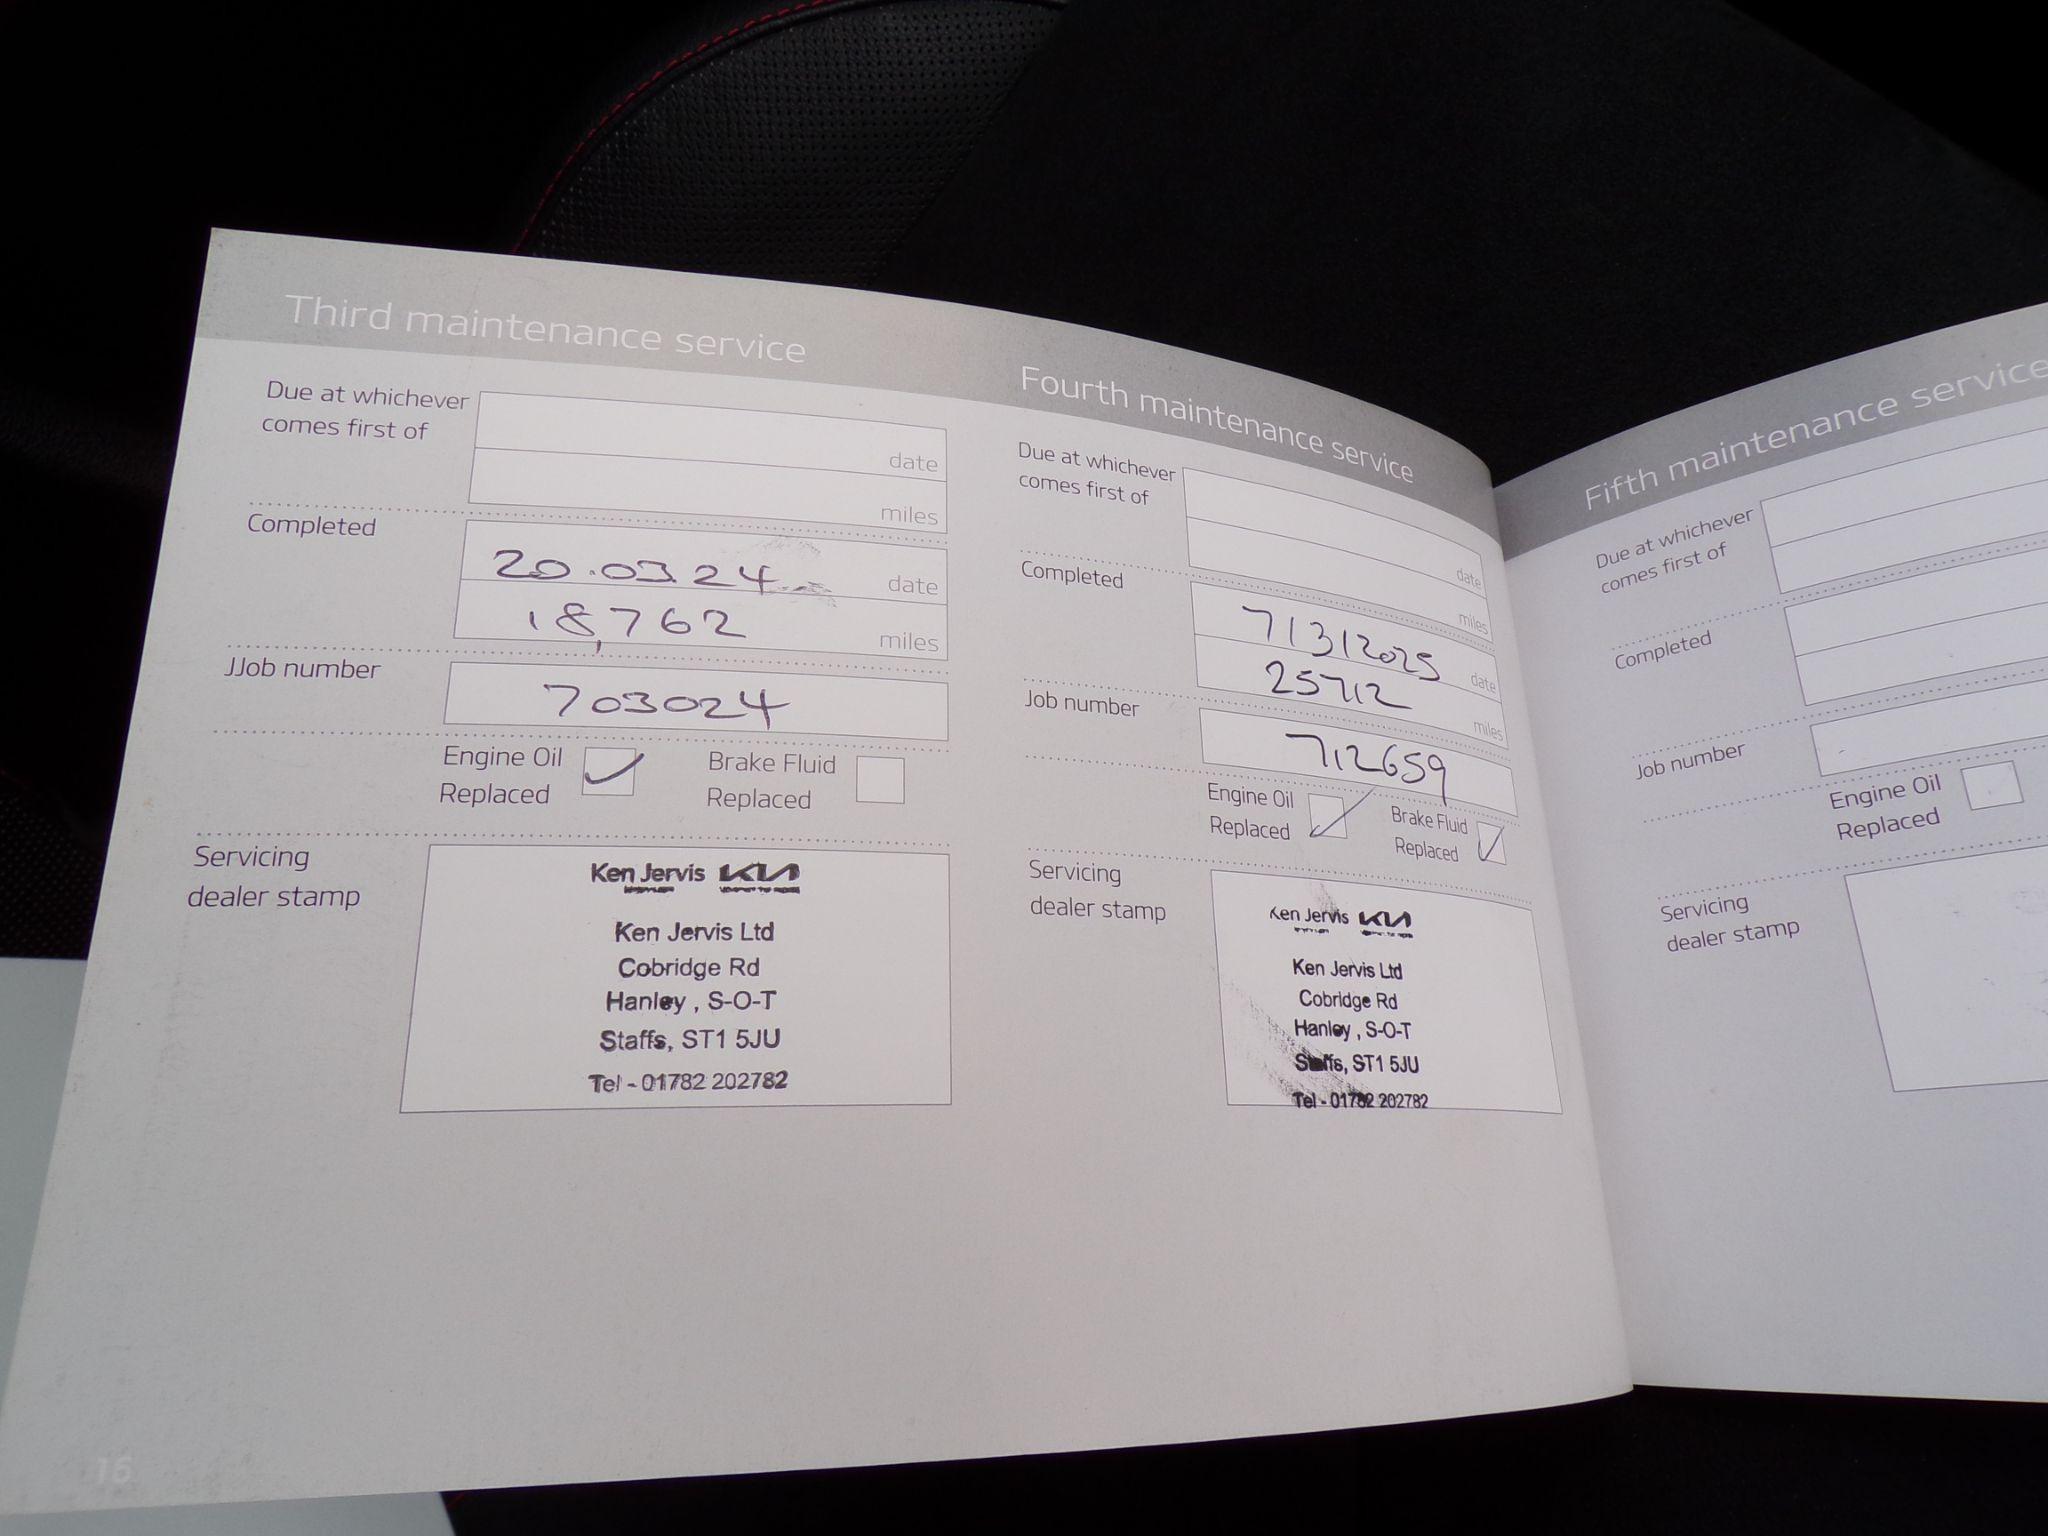 Third maintenance service
Due at whichever
comes first of
date
miles
Completed
20.03.24
date
18,762
miles
JJob number
703024
Engine Oil
Replaced
Brake Fluid
Replaced
Servicing
dealer stamp
Ken Jervis KIA
Ken Jervis Ltd
Cobridge Rd
Hanley , S-O-T
Staffs, ST1 5JU
Tel - 01782 202782
16
Fourth maintenance service
Due at whichever
comes first of
date
miles
Completed
7/3/2025
date
25712
miles
Job number
712659
Engine Oil
Replaced
Brake Fluid
Replaced
Servicing
dealer stamp
Ken Jervis KIA
Ken Jervis Ltd
Cobridge Rd
Hanley , S-O-T
Staffs, ST1 5JU
Tel - 01782 202782
Fifth maintenance service
Due at whichever
comes first of
Completed
Job number
Engine Oil
Replaced
Servicing
dealer stamp